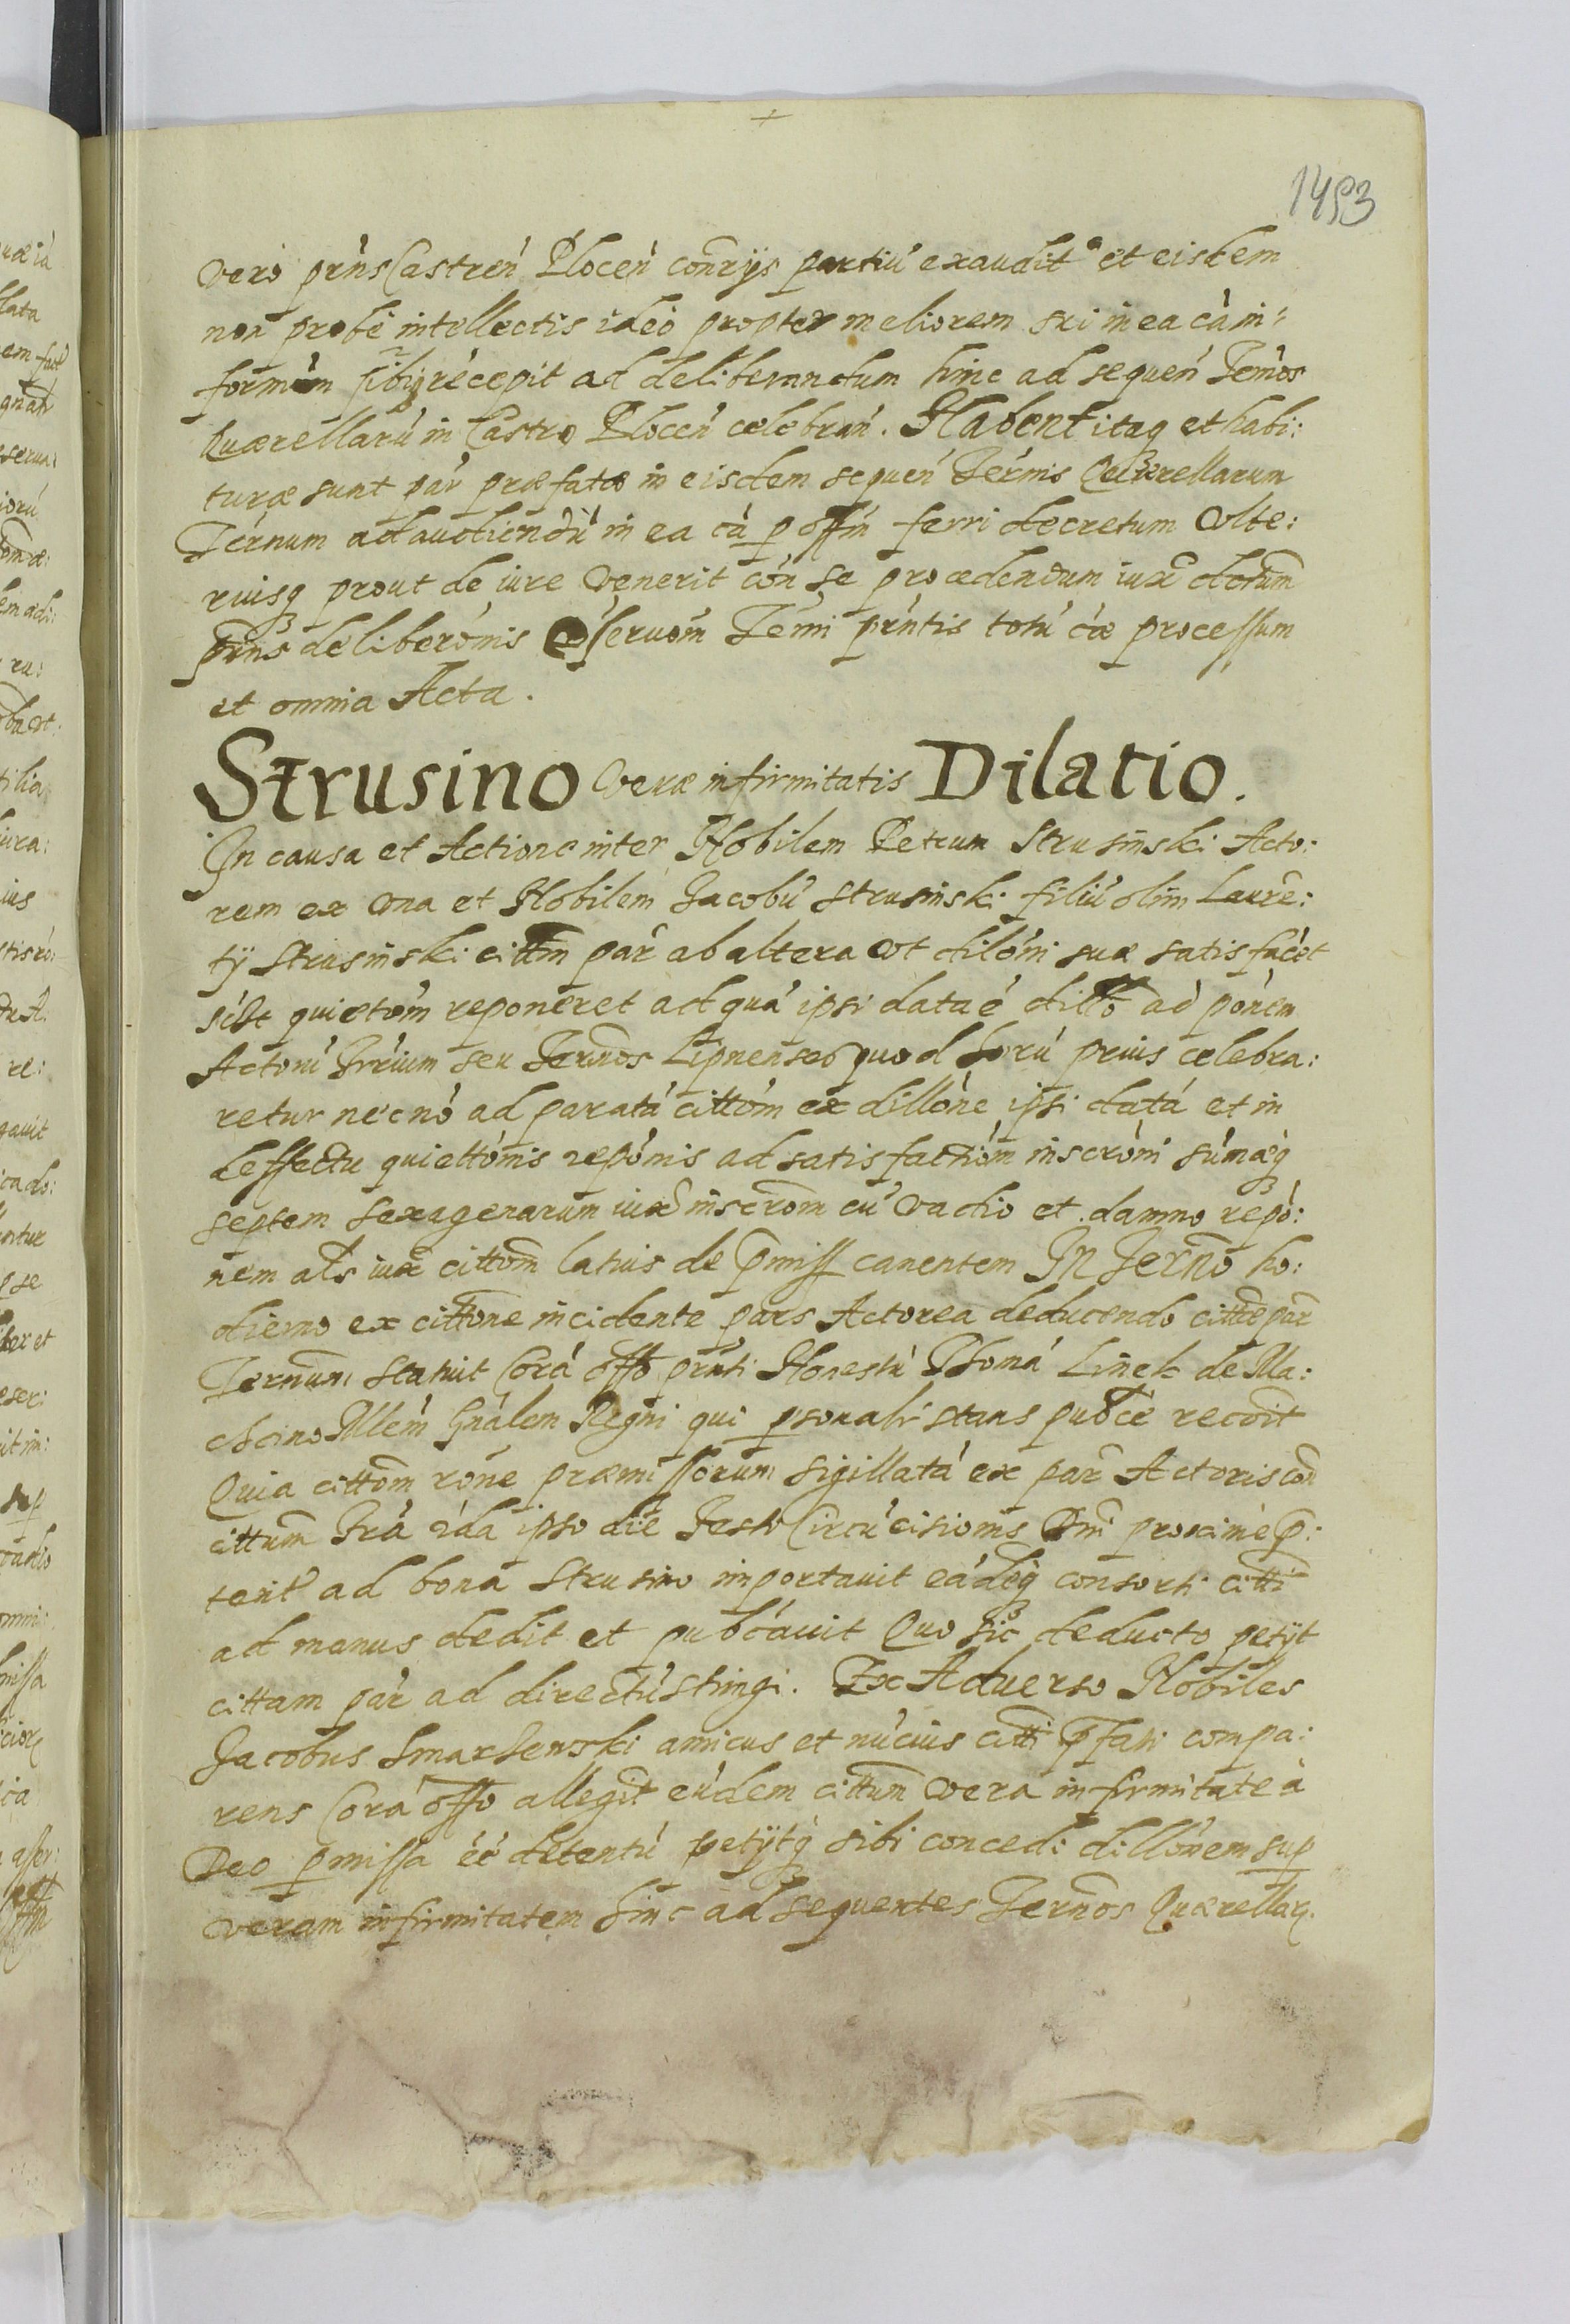 1493
vero prńs Castreń Płoceń conr̃ijs partiu exaudit et eisdem
non probe intellectis ideo propter meliorem sui in ea cà in:
formom sibi recepit ad deliberandum hinc ad sequeń Termos
Quærellaru in Castro Płoceń celebrań. Habent itaq et habi:
turæ sunt par præfatæ in eisdem sequeń Termis Quærellarum
Ternum ad audiendu in ea cà p offm ferri decretum Vlte:
riusq prout de iure Venerit con se procedendum iux
prns deliberonis Obseruom Termi pŕntis totu cæ processum
et omnia Acta.
Strusino Veræ infirmitatis Dilatio.
In causa et Actione inter Nobilem Petrum Strusinski Acto:
rem ex Vna et Nobilem Jacobu Strusinski filiu olim Laure:
tij Strusinski cittm par ab altera Vt diloni suæ satisfacet
quietom reponeret ad qua ipsi data e ad
Actoru seu Ternos Lipnenses quod horu prius celebra:
retur necno ad parata cittom ex dillone ipsi data et in
deffectu quiettonis reponis ad satisfactiom inscroni sumaq
septem sexagenarum iux inscrom cu Vadio et damno repo:
nem als iux cittom latius de pmiss canentem In Termo ho:
dierno ex cittone incidente pars Actorea deducendo citte par
Ternum statuit Cora offo prnti Honestu Thoma Linek de Ma:
chcino Mlem Gnalem Regni qui psonalr stans publce recoit
Quia cittom rone præmissorum sigillata ex par Actoris con
cittum ipso die Festo Circucisionis Dni proxime p:
terit ad bona Strusino importauit eademq consorti citti
ad manus dedit et publcauit Quo sic deducto petijt
cittam par ad directu stringi. Ex Aduerso Nobiles
Jacobus Smarzewski amicus et nucius citti pfati compa:
rens Cora offo allegit eudem cittum Vera infirmitate a
Deo pmissa ee detentu petijtq sibi concedi dillonem sup
veram infirmitatem hinc ad sequentes Ternos Quærellar.